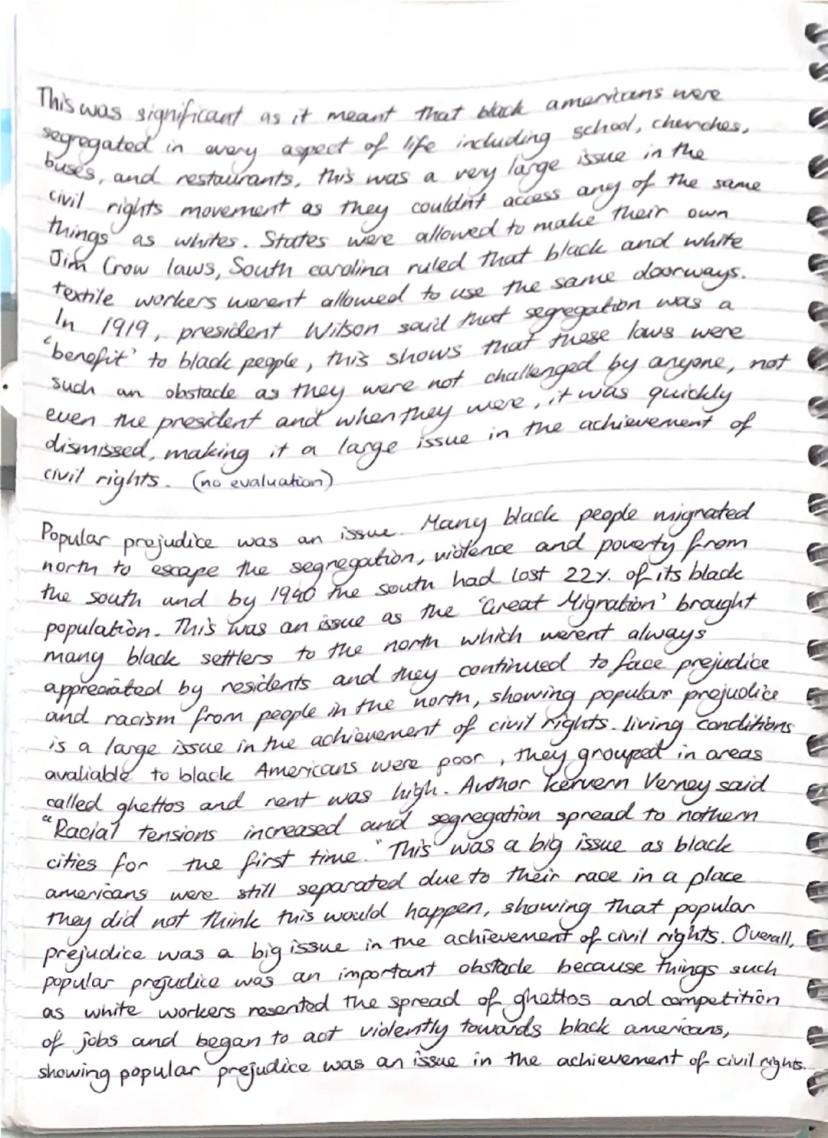 This was significant as it meant that black americans were
segregated in every aspect of life including school, cherches,
buses, and restaurants, this was a very large issue in the
civil rights movement as they couldn't access any of the same
things as whites. States were allowed to make their own
Jim Crow laws, South carolina ruled that black and white
textile workers werent allowed to use the same doorways.
In 1919, president Wilson said that segregation was a
'benefit' to black people, this shows that these laws were
such an obstacle as they were not challenged by anyone, not
even the president and when they were, it was quickly
dismissed, making it a large issue in the achievement of
civil rights. (no evaluation)
Popular prejudice was an issue. Many black people migrated
north to escape the segregation, violence and poverty from
the south and by 1940 the south had lost 22% of its black
population. This was an issue as the 'Great Migration' brought
many black settlers to the north which werent always
appreciated by residents and they continued to face prejudice
and racism from people in the north, showing popular prejudice
is a large issue in the achievement of civil rights. living conditions
avaliable to black Americans were poor, they grouped in areas
called ghettos and rent was high. Author Kervern Verney said
"Racial tensions increased and segregation spread to nothern
cities for the first time." This was a big issue as black
americans were still separated due to their race in a place
they did not think this would happen, showing that popular
prejudice was a big issue in the achievement of civil rights. Overall,
popular prejudice was an important obstacle because things such
as white workers resented the spread of ghettos and competition
of jobs and began to act violently towards black americans,
showing popular prejudice was an issue in the achievement of civil rights.